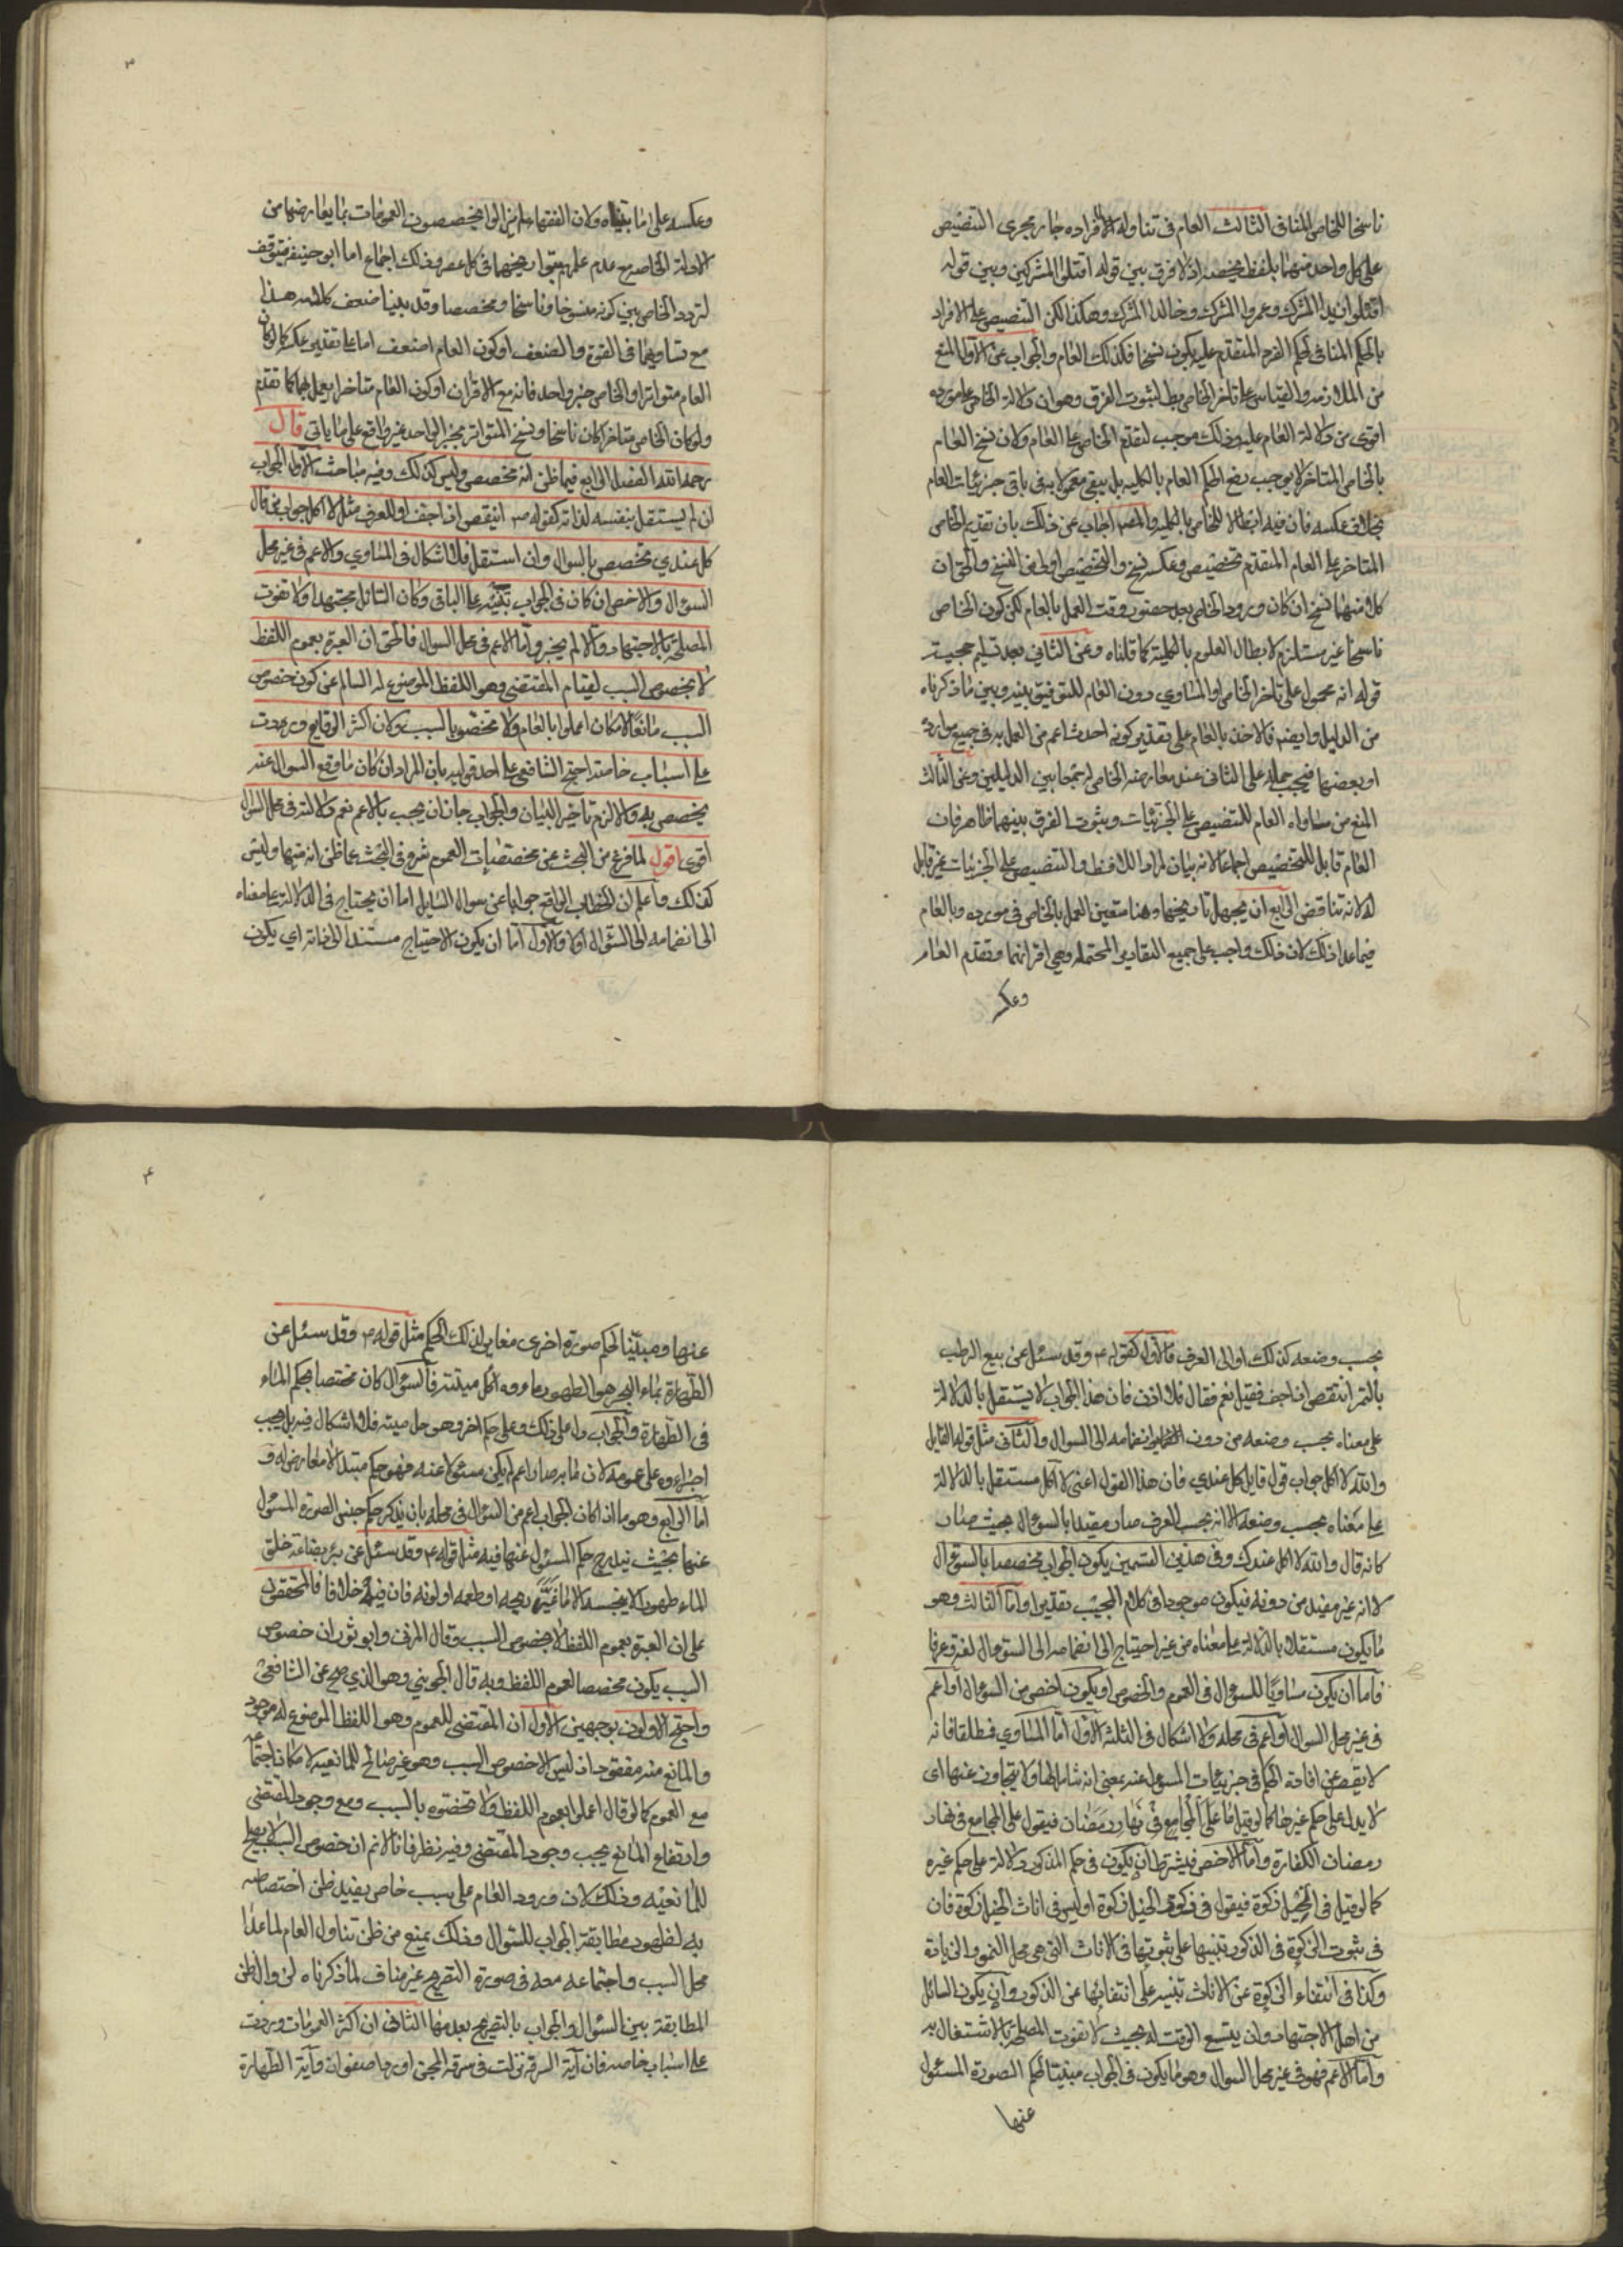 ناسخا للخاص المنافي الثالث العام في تناوله لافراده جار مجرى التنصيص
على كل واحد منها بلفظ يخصه اذ لا فرق بين قوله اقتلوا المشركين وبين قوله
اقتلوا زيدا المشرك وعمروا المشرك وخالدا المشرك وهكذا لكن التنصيص على الافراد
بالحكم المنافي لحكم الفرد المتقدم عليه يكون نسخا فكذلك العام والجواب عن الاول المنع
من الملازمة والقياس على تاخر الخاص بط لثبوت الفرق وهو ان دلالة الخاص على مورده
اقوى من دلالة العام عليه وذلك موجب لتقدم الخاص على العام ولان نسخ العام
بالخاص المتاخر لا يوجب رفع الحكم العام بالكلية بل يبقى معمولا به في باقي جزئيات العام
بخلاف عكسه فان فيه ابطالا للخاص بالكلية والمصـ اجاب عن ذلك بان تقديم الخاص
المتاخر على العام المتقدم تخصيص وعكسه نسخ والتخصيص اولى من النسخ والحق ان
كلا منهما نسخ ان كان ورود الخاص بعد حضور وقت العمل بالعام لكن كون الخاص
ناسخا غير مستلزم لابطال العلوم بالكلية كما قلناه وعن الثاني بعد تسليم حجيته
قوله انه محمول على تاخر الخاص او المساوي دون العام للتوفيق بينه وبين ما ذكرناه
من الدليل وايضـ فالاخذ بالعام على تقدير كونه احدث اعم من العمل به في جميع موارده
او بعضها فيجب حمله على الثاني عند معارضة الخاص له جمعا بين الدليلين وعن الثالث
المنع من مساواة العام للتنصيص على الجزئيات وثبوت الفرق بينهما ظاهر فان
العام قابل للتخصيص اجماعا لانه بيان لمراد اللافظ والتنصيص على الجزئيات غير قابل
له لانه تناقض الرابع ان يجهل تاريخهما وهنا متعين العمل بالخاص في مورده وبالعام
فيما عدا ذلك لان ذلك واجب على جميع التقادير المحتملة وهي اقترانهما وتقدم العام
وعكسه
٣
وعكسه على ما بيناه ولان الفقهاء لم يزالوا يخصصون العمومات بما يعارضها من
الادلة الخاصة مع عدم علمهم بتواريخها في كل عصر وذلك اجماع اما ابو حنيفة فيتوقف
لتردد الخاص بين كونه منسوخا وناسخا ومخصصا وقد بينا ضعف كلامه هذا
مع تساويهما في القوة والضعف او كون العام اضعف اما على تقدير عكسه كما لو كان
العام متواترا والخاص خبر واحد فانه مع الاقتران او كون العام متاخرا يعمل بهما كما تقدم
ولو كان الخاص متاخرا كان ناسخا ونسخ المتواتر بخبر الواحد غير واقع على ما ياتي قال
رحمه الله الفصل الرابع فيما ظن انه مخصص وليس كذلك وفيه مباحث الاول الجواب
ان لم يستقل بنفسه لذاته كقوله ص اينقص اذا جف او للعرف مثل لا اكل جواب من قال
كل عندي مخصص بالسؤال وان استقل فلا اشكال في المساوي والاعم في غير محل
السؤال والاخص ان كان في الجواب تنبيه على الباقي وكان السائل مجتهدا ولا تفوت
المصلحة بالاجتهاد والا لم يجز واما الاعم في محل السؤال فالحق ان العبرة بعموم اللفظ
لا بخصوص السبب لقيام المقتضي وهو اللفظ الموضوع له السالم عن كون خصوص
السبب مانعا لامكان اعملوا بالعام ولا تخصوه بالسبب ولان اكثر الوقايع وردت
على اسباب خاصة احتج الشافعي على احد قوليه بان المراد ان كان ما وقع السؤال عنه
يخصص به والا لزم تاخير البيان والجواب جاز ان يجب بالاعم نعم دلالته في محل السؤال
اقوى اقول لما فرغ من البحث عن مخصصات العموم شرع في البحث عما ظن انه منها وليس
كذلك واعلم ان الخطاب الواقع جوابا عن سؤال السايل اما ان يحتاج في الدلالة على معناه
الى انضمامه الى السؤال او لا والاول اما ان يكون الاحتياج مستندا الى ذاته اي يكون
بحسب وضعه كذلك او الى العرف فالاول كقوله ع وقد سئل عن بيع الرطب
بالتمر اينقص اذا جف فقيل نعم فقال فلا اذن فان هذا الجواب لا يستقل بالدلالة
على معناه بحسب وضعه من دون انضمامه الى السؤال والثاني مثل قوله القايل
والله لا اكل جواب قول قايل كل عندي فان هذا القول اعني لا اكل مستقل بالدلالة
على معناه بحسب وضعه الا انه بحسب العرف صار مقيدا بالسؤال بحيث صار
كانه قال والله لا اكل عندك وفي هذين القسمين يكون الجواب مخصصا بالسؤال
لانه غير مفيد من دونه فيكون موجودا في كلام المجيب تقديرا واما الثالث وهو
ما يكون مستقلا بالدلالة على معناه من غير احتياج الى انضمامه الى السؤال لغة وعرفا
فاما ان يكون مساويا للسؤال في العموم والخصوص او يكون اخص من السؤال او اعم
في غير محل السؤال او اعم في محله ولا اشكال في الثلثة الاول اما المساوي فمطلقا فانه
لا يقصر عن افادة الحكم في جزئيات المسؤل عنه بمعنى انه شاملها ولا يتجاوز عنها اى
لا يدل على حكم غيرها كما لو قيل ما على المجامع في نهار رمضان فيقول على المجامع في نهار
رمضان الكفارة واما الاخص فيشترط ان يكون في حكم المذكور دلالة على حكم غيره
كما لو قيل في الخيل زكوة فيقول في ذكور الخيل زكوة او ليس في اناث الخيل زكوة فان
في ثبوت الزكوة في الذكور تنبيها على ثبوتها في الاناث التي هي محل النمو والزيادة
وكذا في انتفاء الزكوة عن الاناث تنبيه على انتفائها عن الذكور وان يكون السائل
من اهل الاجتهاد وان يتسع الوقت له بحيث لا تفوت المصلحة بالاشتغال به
واما الاعم فهو في غير محل السوال وهو ما يكون في الجواب مبينا لحكم الصورة المسئول
عنها
۴
عنها ومبينا لحكم صورة اخرى مغاير لذلك الحكم مثل قوله ع وقد سئل عن
الطهارة بماء البحر هو الطهور ماؤه الحل ميتته فالسؤال كان مختصا بحكم الماء
في الطهارة والجواب دل على ذلك وعلى حكم اخر وهو حل ميتته فلا اشكال فيه بل يجب
اجراؤه على عمومه لان ما به صار اعم لم يكن مسئولا عنه فهو حكم مبتدا لا معارض له و
اما الرابع وهو ما اذا كان الجواب اعم من السؤال في محله بان يذكر حكم جنس الصورة المسئول
عنها بحيث يندرج حكم المسئول عنها فيه مثل قوله ع وقد سئل عن بئر بضاعة خلق
الماء طهورا لا ينجسه الا ما غير ريحه او طعمه او لونه فان فيه خلافا فالمحققون
على ان العبرة بعموم اللفظ لا بخصوص السبب وقال المزني وابو ثور ان خصوص
السبب يكون مخصصا لعموم اللفظ وبه قال الجويني وهو الذي صح عن الشافعي
واحتج الاولون بوجهين الاول ان المقتضي للعموم وهو اللفظ الموضوع له موجود
والمانع منه مفقود اذ ليس الا خصوص السبب وهو غير صالح للمانعية لامكان اجتماعه
مع العموم كما لو قال اعملوا بعموم اللفظ ولا تخصوه بالسبب ومع وجود المقتضي
وارتفاع المانع يجب وجود المقتضى وفيه نظر فانا لا نم ان خصوص السبب لا يصلح
للمانعية وذلك لان ورود العام على سبب خاص يفيد ظن اختصاصه
به لظهور مطابقة الجواب للسؤال وذلك يمنع من ظن تناول العام لما عدا
محل السبب واجتماعه معه في صورة التصريح غير مناف لما ذكرناه لزوال ظن
المطابقة بين السؤال والجواب بالتصريح بعدمها الثاني ان اكثر العمومات وردت
على اسباب خاصه فان آية السرقة نزلت في سرقة المجن او رداء صفوان وآية الطهارة